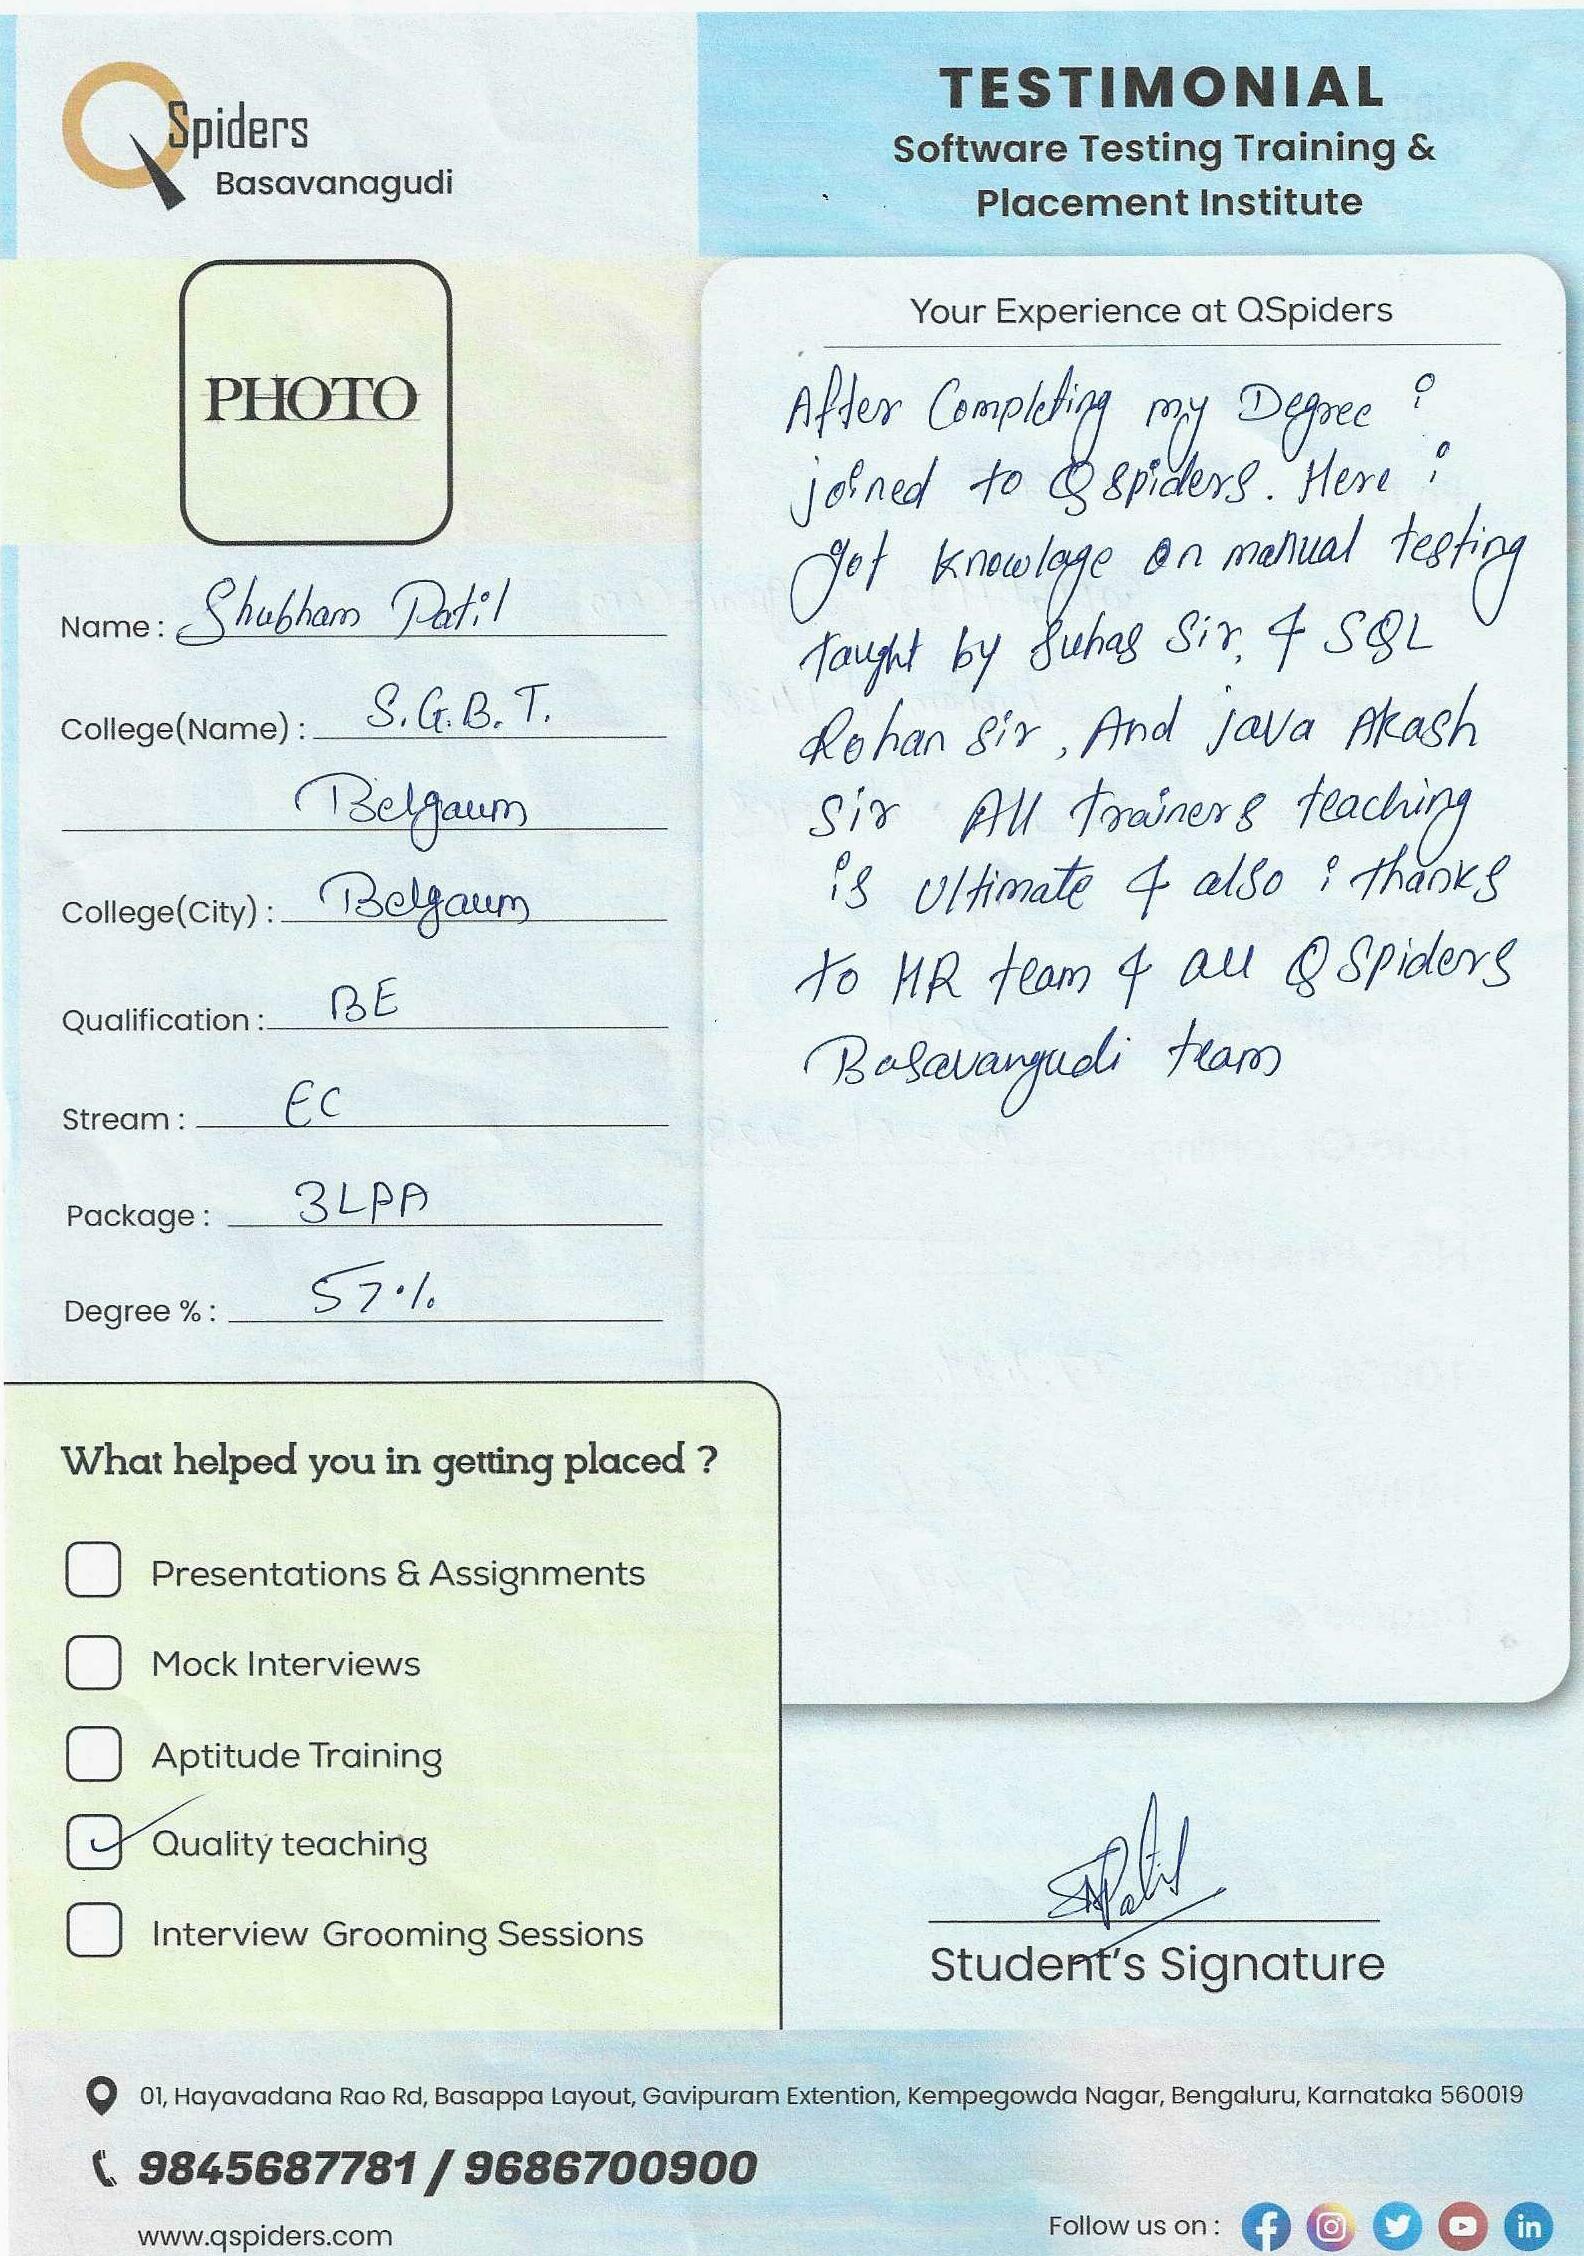 QSpiders
Basavanagudi
TESTIMONIAL
Software Testing Training &
Placement Institute
PHOTO
Name : Shubham Patil
College(Name) : S.G.B.T.
Belgaum
College(City) : Belgaum
Qualification : BE
Stream : EC
Package : 3LPA
Degree % : 57%
Your Experience at QSpiders
After Completing my Degree i
joined to Qspiders. Here i
got knowlage on manual testing
taught by Suhas Sir, & SQL
Rohan sir, And java Akash
Sir All trainers teaching
is ultimate & also i thanks
to HR team & all QSpiders
Basavangudi team
What helped you in getting placed ?
Presentations & Assignments
Mock Interviews
Aptitude Training
Quality teaching
Interview Grooming Sessions
SPatil
Student's Signature
01, Hayavadana Rao Rd, Basappa Layout, Gavipuram Extention, Kempegowda Nagar, Bengaluru, Karnataka 560019
9845687781 / 9686700900
www.qspiders.com
Follow us on :